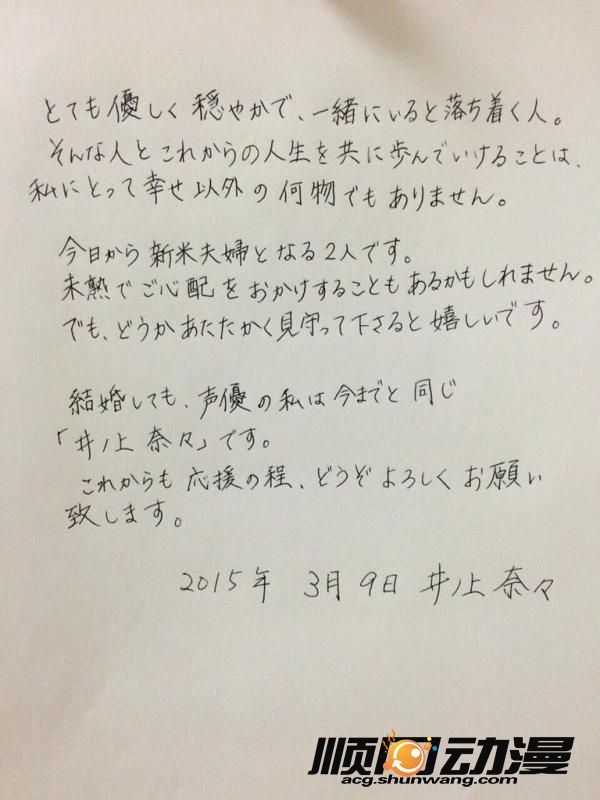 とても優しく穏やかで、一緒にいると落ち着く人。
そんな人とこれからの人生を共に歩んでいけることは、
私にとって幸せ以外の何物でもありません。
今日から新米夫婦となる2人です。
未熟でご心配をおかけすることもあるかもしれません。
でも、どうかあたたかく見守って下さると嬉しいです。
結婚しても、声優の私は今までと同じ
「井ノ上奈々」です。
これからも応援の程、どうぞよろしくお願い
致します。
2015年 3月9日 井ノ上奈々
顺网动漫
acg.shunwang.com